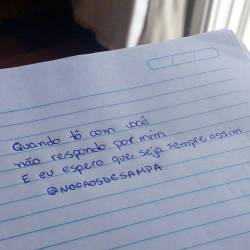 Quando tô com você
não respondo por mim
E eu espero que seja sempre assim
@NOCAOSDESAMPA